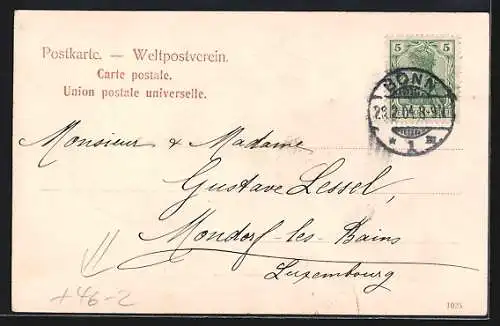 Postkarte. — Weltpostverein.
Carte postale.
Union postale universelle.
5 5
BONN
* 1 m.
Monsieur & Madame
Gustave Lessel,
Mondorf-les-Bains
Luxembourg
+46-2
1025